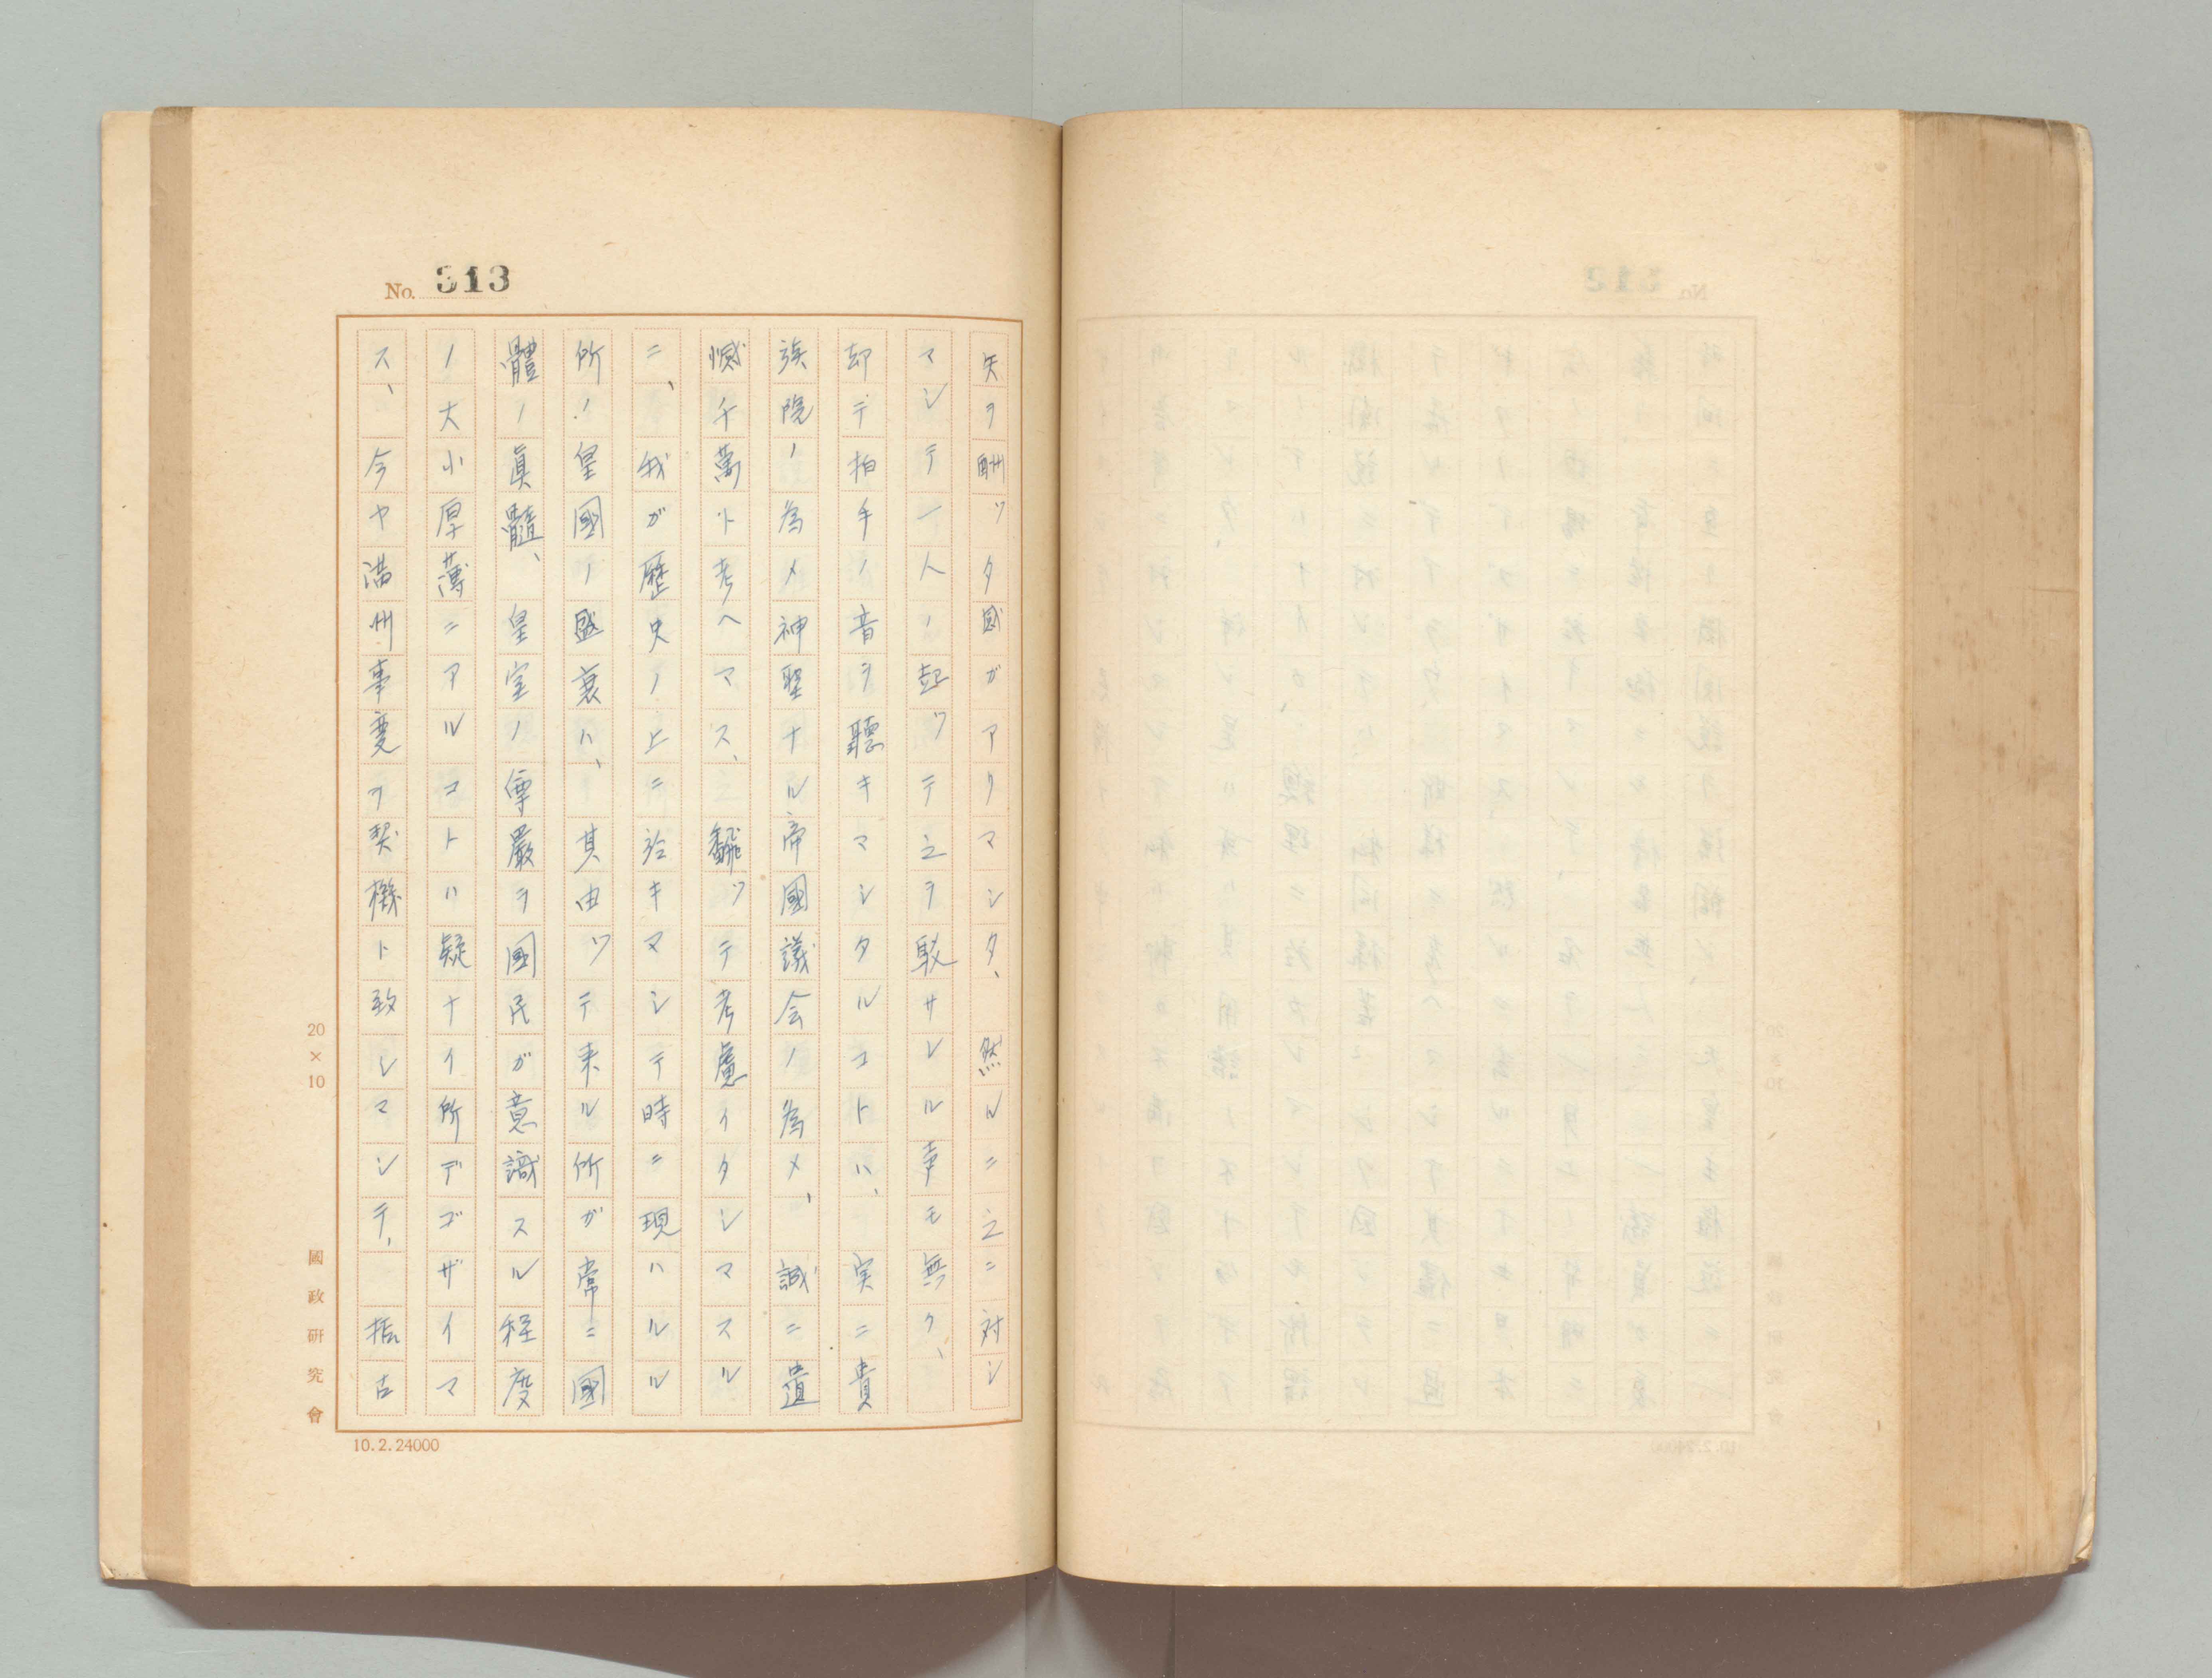 No. 313
矢ヲ酬ツタ感ガアリマシタ、然ルニ之ニ対シ
マシテ一人ノ起ツテ之ヲ駁サレル事モ無ク、
却デ拍手ノ音ヲ聽キマシタルコトハ、実ニ貴
族院ノ為メ神聖ナル帝國議会ノ為メ、誠ニ遺
憾千萬ト考ヘマス、飜ツテ考慮イタシマスル
ニ、我ガ歴史ノ上ニ於キマシテ時ニ現ハルル
所ノ皇國ノ盛衰ハ、其由ツテ来ル所ガ常ニ國
體ノ眞髓、皇室ノ尊嚴ヲ國民ガ意識スル程度
ノ大小厚薄ニアルコトハ疑ナイ所デゴザイマ
ス、今ヤ満州事変ヲ契機ト致シマシテ、振古
20×10
國政研究會
10.2.24000